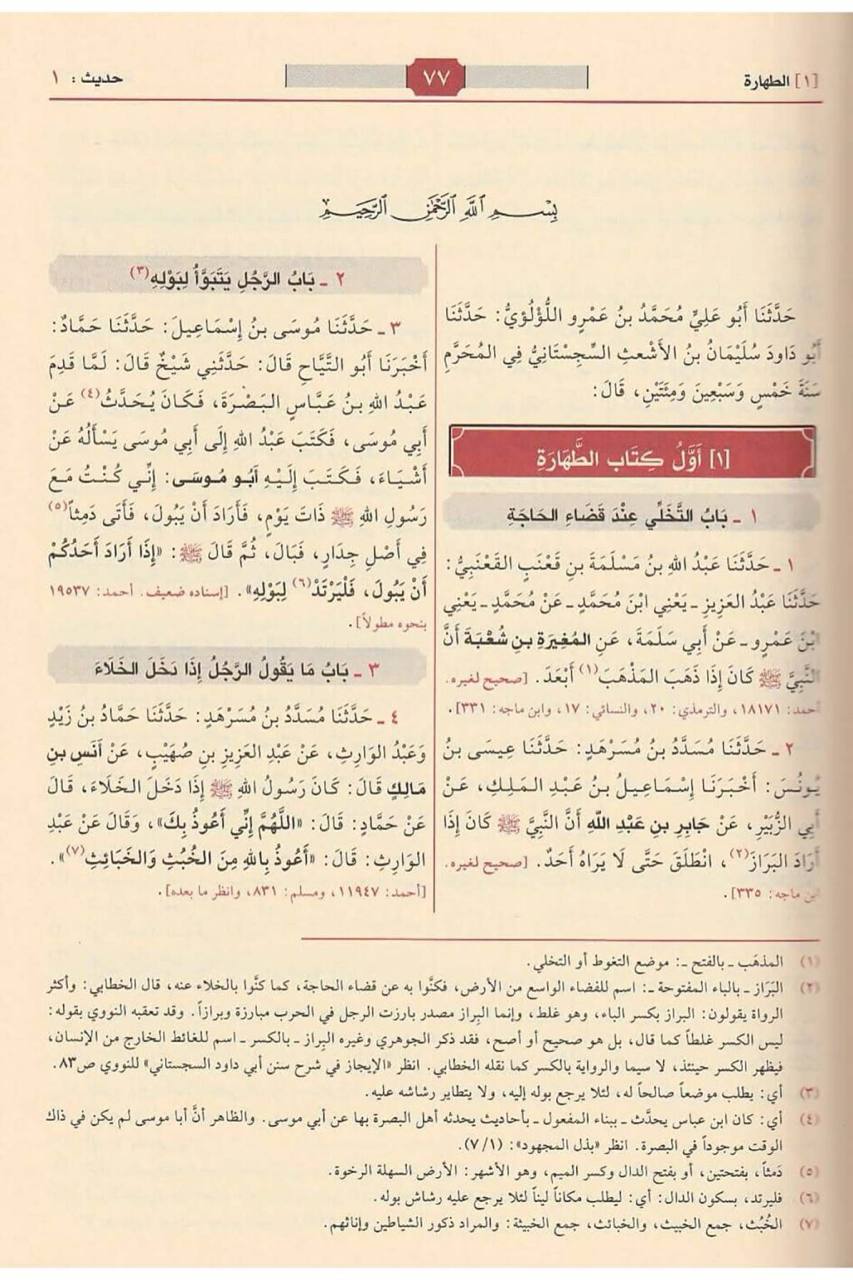 [١] الطهارة
٧٧
حديث : ١
بِسْمِ اللهِ الرَّحْمَٰنِ الرَّحِيمِ
حَدَّثَنَا أَبُو عَلِيٍّ مُحَمَّدُ بنُ عَمْرٍو اللُّؤْلُؤِيُّ: حَدَّثَنَا
أَبُو دَاودَ سُلَيْمَانُ بنُ الأَشْعثِ السِّجِسْتَانِيُّ فِي المُحَرَّمِ
سَنَةَ خَمْسٍ وَسَبْعِينَ وَمِئَتَيْنِ، قَالَ:
[١] أَوَّلُ كِتَابِ الطَّهَارَةِ
١ ـ بَابُ التَّخَلِّي عِنْدَ قَضَاءِ الحَاجَةِ
١ ـ حَدَّثَنَا عَبْدُ اللهِ بنُ مَسْلَمَةَ بنِ قَعْنَبٍ القَعْنَبِيُّ:
حَدَّثَنَا عَبْدُ العَزِيزِ ـ يَعْنِي ابْنَ مُحَمَّدٍ ـ عَنْ مُحَمَّدٍ ـ يَعْنِي
ابْنَ عَمْرٍو ـ عَنْ أَبِي سَلَمَةَ، عَنِ المُغِيرَةِ بنِ شُعْبَةَ أَنَّ
النَّبِيَّ ﷺ كَانَ إِذَا ذَهَبَ المَذْهَبَ(١) أَبْعَدَ. [صحيح لغيره.
أحمد: ١٨١٧١، والترمذي: ٢٠، والنسائي: ١٧، وابن ماجه: ٣٣١].
٢ ـ حَدَّثَنَا مُسَدَّدُ بنُ مُسَرْهَدٍ: حَدَّثَنَا عِيسَى بنُ
يُونُسَ: أَخْبَرَنَا إِسْمَاعِيلُ بنُ عَبْدِ المَلِكِ، عَنْ
أَبِي الزُّبَيْرِ، عَنْ جَابِرِ بنِ عَبْدِ اللهِ أَنَّ النَّبِيَّ ﷺ كَانَ إِذَا
أَرَادَ البَرَازَ(٢)، انْطَلَقَ حَتَّى لَا يَرَاهُ أَحَدٌ. [صحيح لغيره.
ابن ماجه: ٣٣٥].
٢ ـ بَابُ الرَّجُلِ يَتَبَوَّأُ لِبَوْلِهِ(٣)
٣ ـ حَدَّثَنَا مُوسَى بنُ إِسْمَاعِيلَ: حَدَّثَنَا حَمَّادٌ:
أَخْبَرَنَا أَبُو التَّيَّاحِ قَالَ: حَدَّثَنِي شَيْخٌ قَالَ: لَمَّا قَدِمَ
عَبْدُ اللهِ بنُ عَبَّاسٍ البَصْرَةَ، فَكَانَ يُحَدَّثُ(٤) عَنْ
أَبِي مُوسَى، فَكَتَبَ عَبْدُ اللهِ إِلَى أَبِي مُوسَى يَسْأَلُهُ عَنْ
أَشْيَاءَ، فَكَتَبَ إِلَيْهِ أَبُو مُوسَى: إِنِّي كُنْتُ مَعَ
رَسُولِ اللهِ ﷺ ذَاتَ يَوْمٍ، فَأَرَادَ أَنْ يَبُولَ، فَأَتَى دَمِثاً(٥)
فِي أَصْلِ جِدَارٍ، فَبَالَ، ثُمَّ قَالَ ﷺ: «إِذَا أَرَادَ أَحَدُكُمْ
أَنْ يَبُولَ، فَلْيَرْتَدْ(٦) لِبَوْلِهِ». [إسناده ضعيف. أحمد: ١٩٥٣٧
بنحوه مطولاً].
٣ ـ بَابُ مَا يَقُولُ الرَّجُلُ إِذَا دَخَلَ الخَلَاءَ
٤ ـ حَدَّثَنَا مُسَدَّدُ بنُ مُسَرْهَدٍ: حَدَّثَنَا حَمَّادُ بنُ زَيْدٍ
وَعَبْدُ الوَارِثِ، عَنْ عَبْدِ العَزِيزِ بنِ صُهَيْبٍ، عَنْ أَنَسِ بنِ
مَالِكٍ قَالَ: كَانَ رَسُولُ اللهِ ﷺ إِذَا دَخَلَ الخَلَاءَ، قَالَ
عَنْ حَمَّادٍ: قَالَ: «اللَّهُمَّ إِنِّي أَعُوذُ بِكَ»، وَقَالَ عَنْ عَبْدِ
الوَارِثِ: قَالَ: «أَعُوذُ بِاللهِ مِنَ الخُبُثِ وَالخَبَائِثِ(٧)».
[أحمد: ١١٩٤٧، ومسلم: ٨٣١، وانظر ما بعده].
(١) المذهَب ـ بالفتح ـ: موضع التغوط أو التخلي.
(٢) البَرَاز ـ بالباء المفتوحة ـ: اسم للفضاء الواسع من الأرض، فكنَّوا به عن قضاء الحاجة، كما كنَّوا بالخلاء عنه، قال الخطابي: وأكثر
الرواة يقولون: البراز بكسر الباء، وهو غلط، وإنما البِراز مصدر بارزت الرجل في الحرب مبارزة وبرازاً. وقد تعقبه النووي بقوله:
ليس الكسر غلطاً كما قال، بل هو صحيح أو أصح، فقد ذكر الجوهري وغيره البِراز ـ بالكسر ـ اسم للغائط الخارج من الإنسان،
فيظهر الكسر حينئذ، لا سيما والرواية بالكسر كما نقله الخطابي. انظر «الإيجاز في شرح سنن أبي داود السجستاني» للنووي ص٨٣.
(٣) أي: يطلب موضعاً صالحاً له، لئلا يرجع بوله إليه، ولا يتطاير رشاشه عليه.
(٤) أي: كان ابن عباس يحدَّث ـ ببناء المفعول ـ بأحاديث يحدثه أهل البصرة بها عن أبي موسى. والظاهر أنَّ أبا موسى لم يكن في ذاك
الوقت موجوداً في البصرة. انظر «بذل المجهود»: (٧/١).
(٥) دَمثاً، بفتحتين، أو بفتح الدال وكسر الميم، وهو الأشهر: الأرض السهلة الرخوة.
(٦) فليرتد، بسكون الدال: أي: ليطلب مكاناً ليناً لئلا يرجع عليه رشاش بوله.
(٧) الخُبُث، جمع الخبيث، والخبائث، جمع الخبيثة: والمراد ذكور الشياطين وإناثهم.